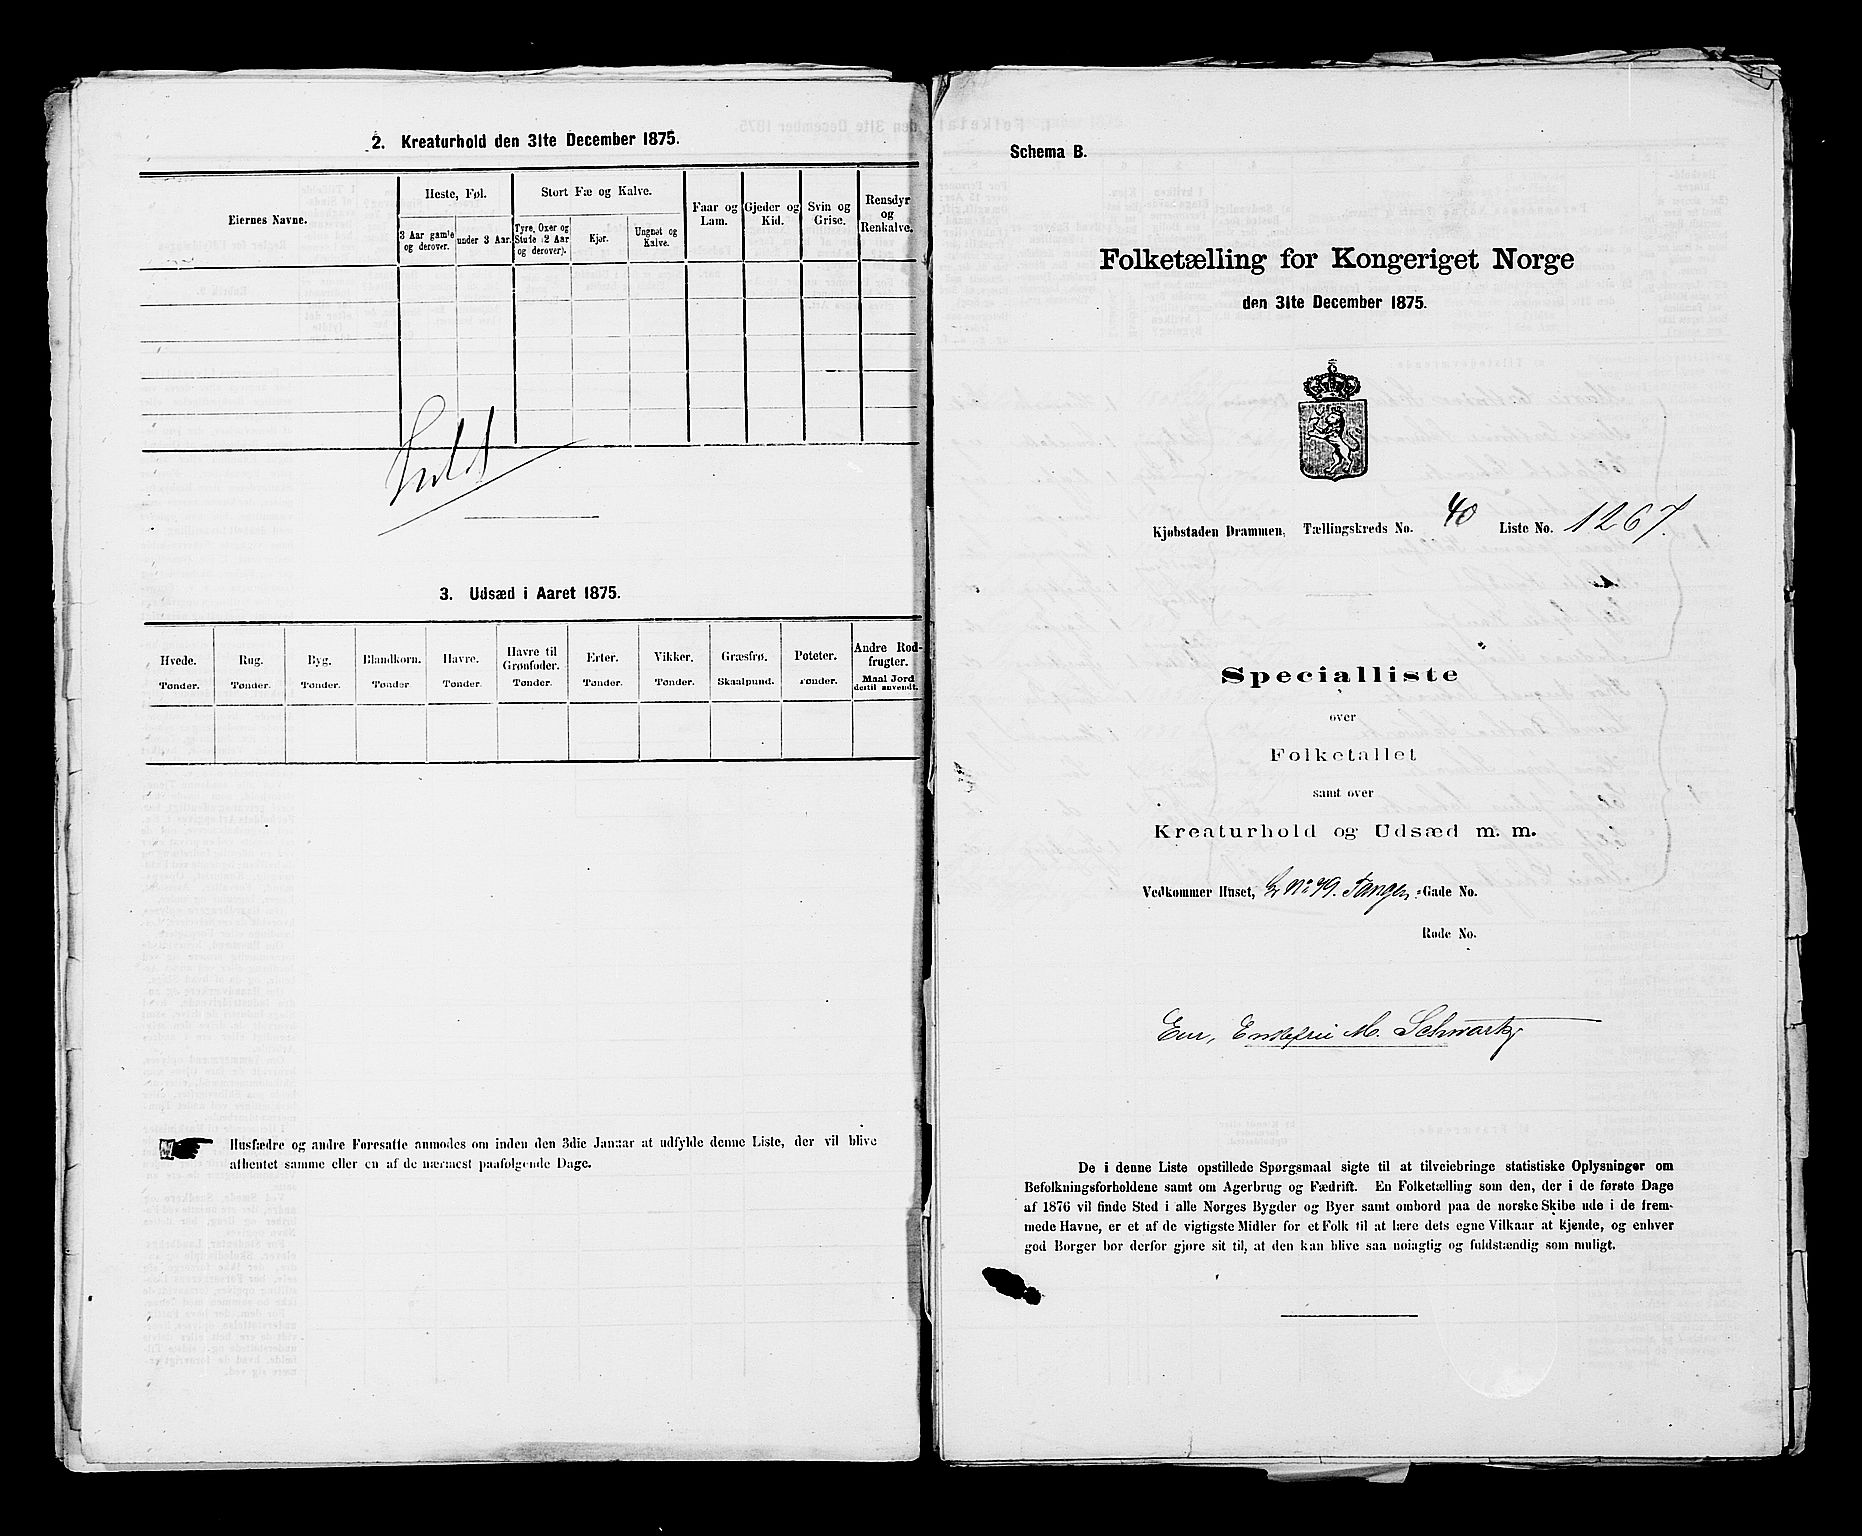 2. Kreaturhold den 31te December 1875.
Eiernes Navne.
Heste, Føl.
Stort Fæ og Kalve.
Faar og Lam.
Gjeder og Kid.
Svin og Grise.
Rensdyr og Renkalve.
3 Aar gamle og derover.
under 3 Aar.
Tyre, Oxer og Stude (2 Aar og derover).
Kjør.
Ungnøt og Kalve.
3. Udsæd i Aaret 1875.
Hvede. Rug. Byg. Blandkorn. Havre. Havre til Grønfoder. Erter. Vikker. Græsfrø. Poteter. Andre Rodfrugter.
Tønder. Tønder. Tønder. Tønder Tønder. Tønder. Tønder. Tønder. Skaalpund. Tønder. Maal Jord dertil anvendt.
Husfædre og andre Foresatte anmodes om inden den 3die Januar at udfylde denne Liste, der vil blive
afhentet samme eller en af de nærmest paafølgende Dage.
Schema B.
Folketælling for Kongeriget Norge
den 31te December 1875.
Kjøbstaden Drammen, Tællingskreds No. 40 Liste No. 1267.
Specialliste
over
Folketallet
samt over
Kreaturhold og Udsæd m. m.
Vedkommer Huset, No 49. Tangen Gade No.
Rode No.
Eier, Enkefru M. Schwartz
De i denne Liste opstillede Spørgsmaal sigte til at tilveiebringe statistiske Oplysninger om
Befolkningsforholdene samt om Agerbrug og Fædrift. En Folketælling som den, der i de første Dage
af 1876 vil finde Sted i alle Norges Bygder og Byer samt ombord paa de norske Skibe ude i de frem-
mede Havne, er et af de vigtigste Midler for et Folk til at lære dets egne Vilkaar at kjende, og enhver
god Borger bør derfor gjøre sit til, at den kan blive saa nøiagtig og fuldstændig som muligt.